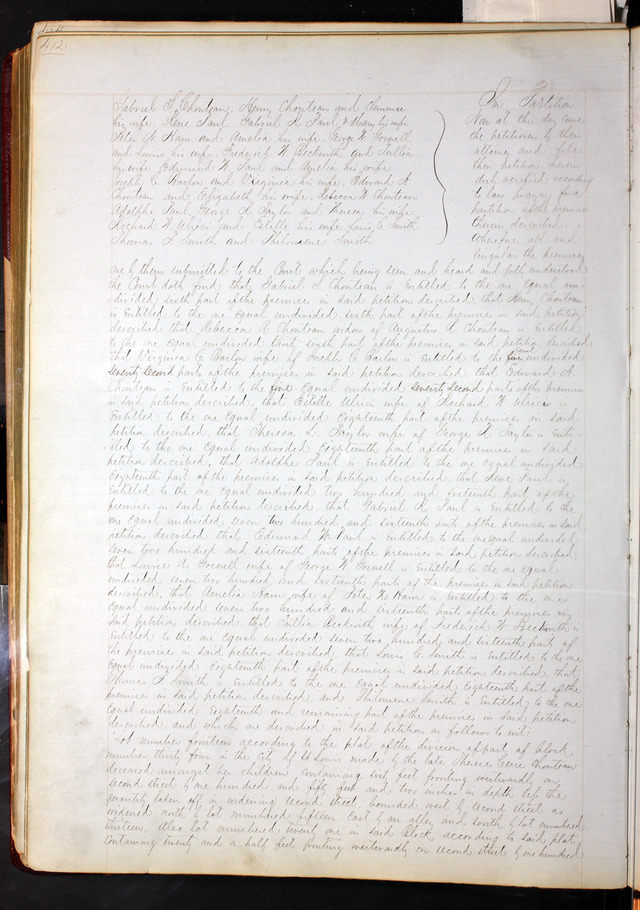 412
Gabriel S. Chouteau, Henry Chouteau and Clemence
his wife, Rene Paul, Gabriel R. Paul, & Mary his wife
Peter N. Ham and Amelia his wife, George W. Gornell
and Louise his wife, Frederick W. Beckwith and Eullia
his wife Edmund W. Paul and Amelia his wife
Joseph C. Barlow and Virginia his wife, Edward A.
Chouteau and Elizabeth his wife, Rebecca W Chouteau
Adolphe Paul, George R. Taylor and Theresa his wife
Richard W. Ulrici and Estelle his wife, Louis C Smith
Thomas F Smith and Philomene Smith
In Partition
Now at this day come
the petitioners by their
attorney and file
their petition herein
duly verified according
to law praying for a
partition of the premises
therein described
Wherefore all and
singular the premises
are by them submitted to the Court which being seen and heard and fully understood
the Court doth find that Gabriel S Chouteau is Entitled to the one Equal un-
divided sixth part of the premises in said petition described that Henry Chouteau
is Entitled to the one Equal undivided sixth part of the premises in said petition
described that Rebecca A Chouteau widow of Augustus R Chouteau is Entitled
to the one Equal undivided thirty sixth part of the premises in said petition described
that Virginia C Barlow wife of Joseph C Barlow is Entitled to the five Equal undivided
seventy second parts of the premises in said petition described that Edward A
Chouteau is Entitled to the five Equal undivided seventy second parts of the premises
in said petition described, that Estelle Ulrici wife of Richard W Ulrici is
Entitled to the one Equal undivided Eighteenth part of the premises in said
petition described, that Theresa L. Taylor wife of George R Taylor is Enti-
tled to the one Equal undivided Eighteenth part of the premises in said
petition described, that Adolphe Paul is Entitled to the one Equal undivided
Eighteenth part of the premises in said petition described, that Rene Paul is
Entitled to the one Equal undivided two hundred and sixteenth part of the
premises in said petition described that Gabriel R Paul is Entitled to the
one Equal undivided seven two hundred and sixteenth parts of the premises in said
petition described that Edmund W Paul is Entitled to the one equal undivided
seven two hundred and sixteenth parts of the premises in said petition described
that Louise A Gornell wife of George W Gornell is Entitled to the one Equal
undivided seven two hundred and sixteenth parts of the premises in said petition
described, that Amelia Ham wife of Peter N Ham is Entitled to the one
Equal undivided seven two hundred and sixteenth parts of the premises in
said petition described that Eullia Beckwith wife of Frederick W Beckwith is
Entitled to the one Equal undivided seven two hundred and sixteenth parts of
the premises in said petition described, that Louis C Smith is Entitled to the one
Equal undivided Eighteenth part of the premises in said petition described, that
Thomas F Smith is Entitled to the one Equal undivided Eighteenth part of the
premises in said petition described, and Philomene Smith is Entitled to the one
Equal undivided Eighteenth and remaining part of the premises in said petition
described and which are described in said petition as follows to wit:
Lot number fourteen according to the plat of the division of part of block
number thirty four in the City of St Louis made by the late Therese Cerre Chouteau
deceased amongst her children containing sixty feet fronting westwardly on
second street by one hundred and fifty feet and two inches in depth less the
quantity taken off in widening second street, bounded west by second street as
widened north by lot numbered fifteen East by an alley and south by lot numbered
thirteen. Also lot numbered twenty one in said Block according to said plat
containing twenty and a half feet fronting westwardly on second street by one hundred